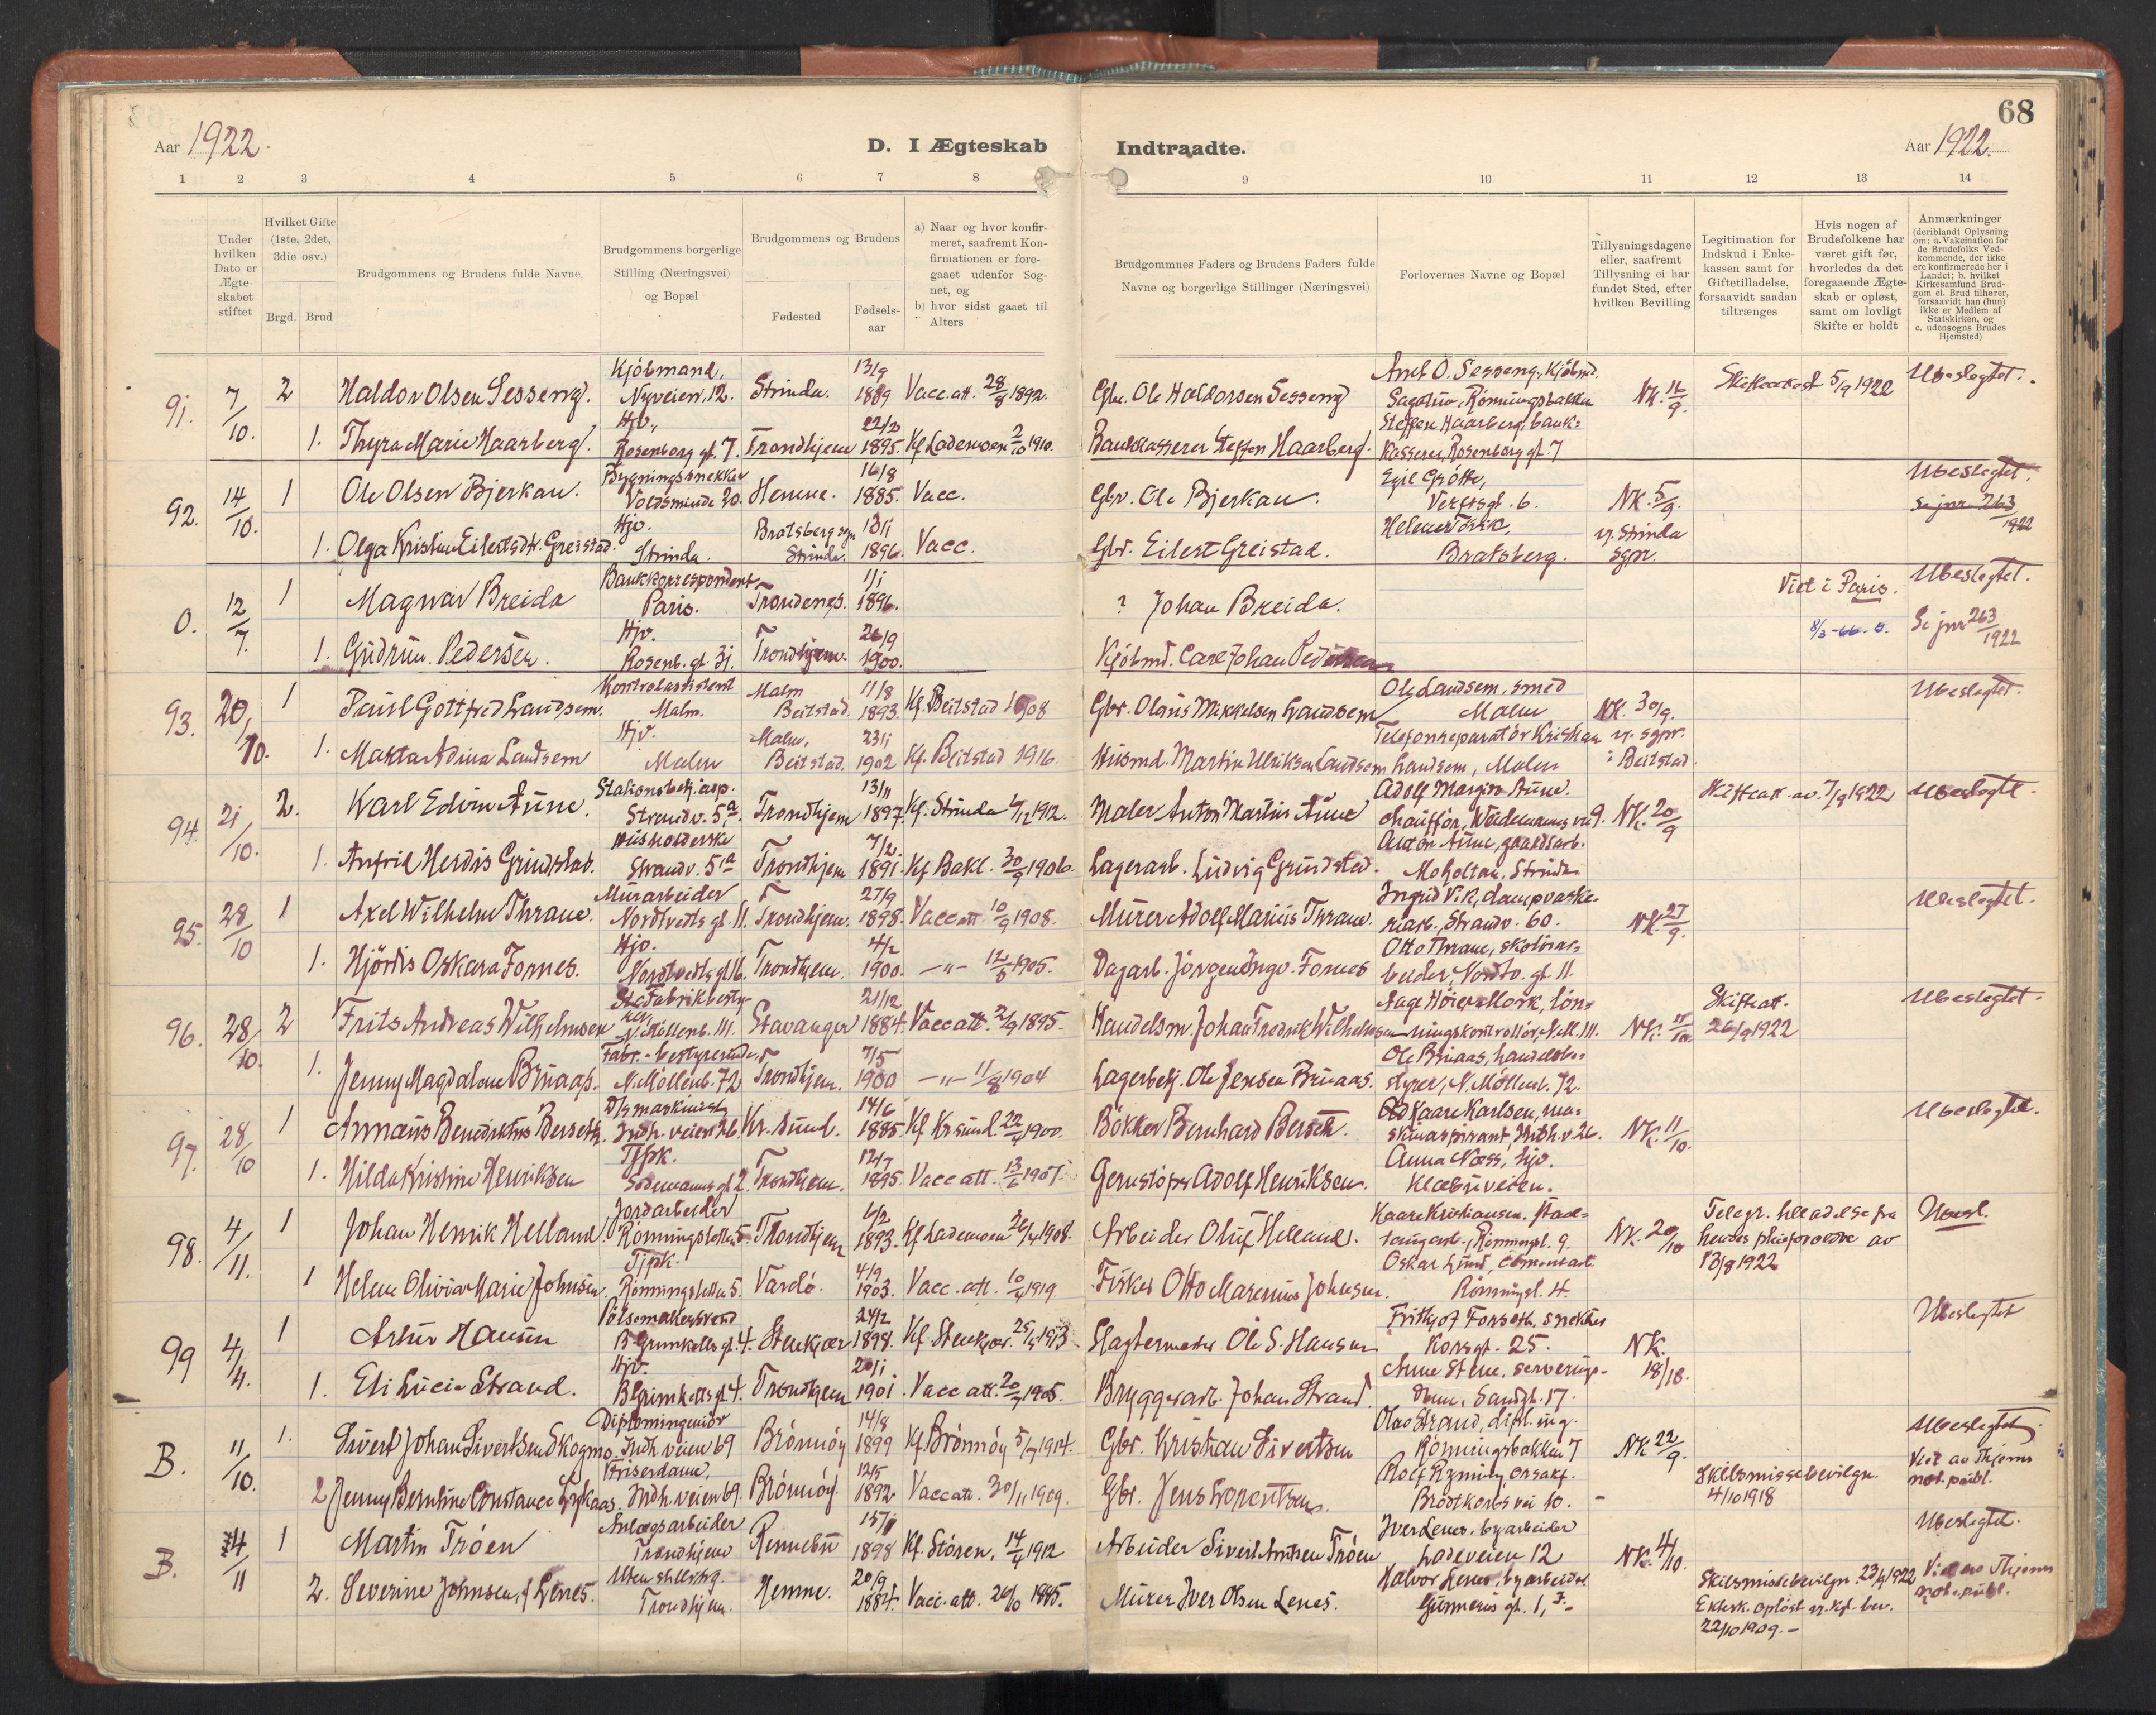 68
Aar 1922. D. I Ægteskab Indtraadte. Aar 1922.
1 2 3 4 5 6 7 8 9 10 11 12 13 14
Under hvilken Dato er Ægteskabet stiftet
Hvilket Gifte (1ste, 2det, 3die osv.)
Brgd. Brud
Brudgommens og Brudens fulde Navne.
Brudgommens borgerlige Stilling (Næringsvei) og Bopæl
Brudgommens og Brudens
Fødested
Fødsels-aar
a) Naar og hvor konfirmeret, saafremt Konfirmationen er foregaaet udenfor Sognet, og
b) hvor sidst gaaet til Alters
Brudgommnes Faders og Brudens Faders fulde Navne og borgerlige Stillinger (Næringsvei)
Forlovernes Navne og Bopæl
Tillysningsdagene eller, saafremt Tillysning ei har fundet Sted, efter hvilken Bevilling
Legitimation for Indskud i Enkekassen samt for Giftetilladelse, forsaavidt saadan tiltrænges
Hvis nogen af Brudefolkene har været gift før, hvorledes da det foregaaende Ægteskab er opløst, samt om lovligt Skifte er holdt
Anmærkninger (deriblandt Oplysning om: a. Vakcination for de Brudefolks Vedkommende, der ikke ere konfirmerede her i Landet; b. hvilket Kirkesamfund Brudgom el. Brud tilhører, forsaavidt han (hun) ikke er Medlem af Statskirken, og c. udensogns Brudes Hjemsted)
91. 7/10. 2 Haldor Olsen Sesseng. Kjöbmand, Nyveien, 12. Strinda. 13/9 1889 Vacc. att. 28/8 1892. Gbr. Ole Haldorsen Sesseng Axel O. Sesseng, Kjöbmd. Rönningsbakken NK. 16/9. Skifteattest 5/9 1922 Ubeslegtet.
1. Thyra Marie Haarberg. Hjv., Rosenborg gt. 7. Trondhjem 22/2 1895. Kf. Lademoen 2/10 1910. Bankkasserer Steffen Haarberg. Steffen Haarberg, bankkasserer, Rosenborg gt. 7
92. 14/10. 1 Ole Olsen Bjerkan. Bygningssnekker Voldsminde 20. Hemne. 16/8 1885. Vacc. Gbr. Ole Bjerkan. Egil Grötte, Verftsgt. 6. NK. 5/9. Ubeslegtet. Se jnr 263/1922
1. Olga Kristine Eilertsdtr. Greistad. Hjv. Strinda. Bratsberg sgn Strinda. 13/1 1896. Vacc. Gbr. Eilert Greistad. Bratsberg. v. Strinda sgpr.
0. 12/7. 1 Magnar Breida Bankkorrespondent, Paris. Trondenes. 1/1 1896. ? Johan Breida. Viet i Paris. Ubeslegtet.
1. Gudrun Pedersen. Hjv. Rosenb. gt. 31. Trondhjem. 26/9 1900. Kjöbmd. Carl Johan Pedersen 8/3-66. Se jnr 263/1922
93. 20/10. 1 Paul Gottfred Landsem. Kontrolassistent Malm. Malm Beitstad. 11/8 1893. Kf. Beitstad 1908 Gbr. Olaus Mikkelsen Landsem Ole Landsem, smed Malm NK. 30/9. Ubeslegtet.
1. Makta Adina Landsem Hjv. Malm Malm, Beitstad. 23/1 1902 Kf. Beitstad 1916 Husmd. Martin Ulriksen Landsem Telefonreparatör Kristian Landsem, Malm v. sgpr. i Beitstad.
94. 21/10. 2. Karl Edvin Aune. Stationsbetj. asp. Strandv. 5a. Trondhjem 13/11 1897. Kf. Strinda 1912. Maler Anton Martin Aune Adolf Margin Aune. chaufför, NK. 20/9 Skifteatt. av 7/9 1922 Ubeslegtet.
1. Anfrid Herdis Grindstad. Husholderske Strandv. 5a Trondhjem 7/2. 1891. Kf. Bakl. 30/9 1906. Lagerarb. Ludvig Grindstad. Anton Aune, gaardsarb. Moholtan, Strinda
95. 28/10 1 Axel Wilhelm Thrane. Murarbeider Nordtvedts gt. 11. Trondhjem. 27/9 1898. Vacc att. 10/9 1908. Murer Adolf Marius Thrane. Ingrid Vik, dampvaskeriarb., Strandv. 60. NK. 27/9. Ubeslegtet.
1. Hjördis Oskara Fornes. Hjv. Nordtvedts gt 16. Trondhjem. 4/2 1900. —"— 12/8 1905. Dagarb. Jörgen Ingv. Fornes Otto Thrane, skotörarbeider, Nordtv. gt. 11.
96. 28/10. 2 Frits Andreas Wilhelmsen Fabrikbestyrer, N. Möllenb. 111. Stavanger 21/12 1884. Vacc att. 2/9 1895. Handelsm. Johan Fredrik Wilhelmsen Aage Höier Mork, lönningskontrollör, N. M. 111. NK. 11/10 Skifteatt. 26/9 1922 Ubeslegtet.
1. Jenny Magdalene Bruaas. Fabr.-bestyrerinde, N. Möllenb. 72 Trondhjem. 7/5 1900 —"— 11/8 1904 Lagerbetj. Ole Jensen Bruaas. Ole Bruaas, handelsbestyrer, N. Möllenb. 72.
97. 28/10 1 Annæus Benediktus Berseth. D/s maskinist, Indh. veien 26. Kr.sund. 14/6 1885. Kf. Kr.sund. 22/4 1900. Bökker Bernhard Berseth. Kaare Karlsen, maskinaspirant, Indh. v. 26. NK. 11/10. Ubeslegtet.
1. Hilda Kristine Henriksen Tjpk. Sodemannsgt 2. Trondhjem. 12/7 1895. Vacc att. 13/6 1901. Gerustöper Adolf Henriksen. Anna Næss, hjv. Klæbuveien.
98. 4/11. 1 Johan Henrik Helland. Jordarbeider Rönningsletten 5. Trondhjem 6/2 1893. Kf. Lademoen 26/4 1908. Arbeider Oluf Helland. Kaare Kristiansen, Rönningsl. 9. NK. 20/10 Telegr. tilladelse fra 13/9 1922 Ubesl.
1 Helene Olivia Marie Johnsen. Tjpk. Rönningsletten 5. Vardö. 4/9 1903. Vacc. att. 10/4 1919. Fisker Otto Marenius Johnsen. Oskar Lund, cementarb. Rönningsl. 4.
99 4/4. 1 Artur Hansen Pölsemakersvend B. Grimkells gt. 4. Stenkjær 24/2 1898. Kf. Stenkjær. 25/5 1913. Slagtermester Ole S. Hansen Frithjof Forseth, snekker Korsgt. 25. NK. 18/18. Ubeslegtet
1. Eli Lucie Strand. Hjv. B. Grimkells gt 4. Trondhjem 20/1 1901. Vacc att. 20/7 1905. Bryggerarb. Johan Strand. Anne Stene, serveringsdame, Sandgt. 17.
B. 11/10. 1. Sivert Johan Sivertsen Skogmo. Diplomingeniör Indh. veien 69 Brönnöy 14/8 1899 Kf. Brönnöy 5/7 1914. Gbr. Kristian Sivertsen Olav Strand, dipl. ing. Rönningsbakken 7 NK. 22/9. Ubeslegtet. Viet av Thjems not. publ.
2 Jenny Berntine Constance Lykaas. Friserdame, Indh. veien 69. Brönnöy. 12/5 1892 Vacc att. 30/11 1909. Gbr. Jens Lorentsen. Rolf Ryning, Brödtkorbs vei 10. Skilsmissebevilgn. 4/10 1918
B. 4/11 1 Martin Tröen Anlægsarbeider Trondhjem Rennebu 1898 Kf. Stören, 14/4 1912 Arbeider Sivert Arntsen Tröen Iver Lenes, byarbeider Ladeveien 12 NK. 4/10. Ubeslegtet.
2. Severine Johnsen, f. Lenes. Uten stilling. Trondhjem. Hemne. 20/9 1884. Vacc. att. 26/10 1885. Murer Iver Olsen Lenes. Halvor Lenes, byarbeider Gunnerus gt. 1, Skilsmissebevilgn. 23/9 1922 Ektesk. oplöst v. kgl. bev. 22/10 1909.- Viet av Thjems not. publ.